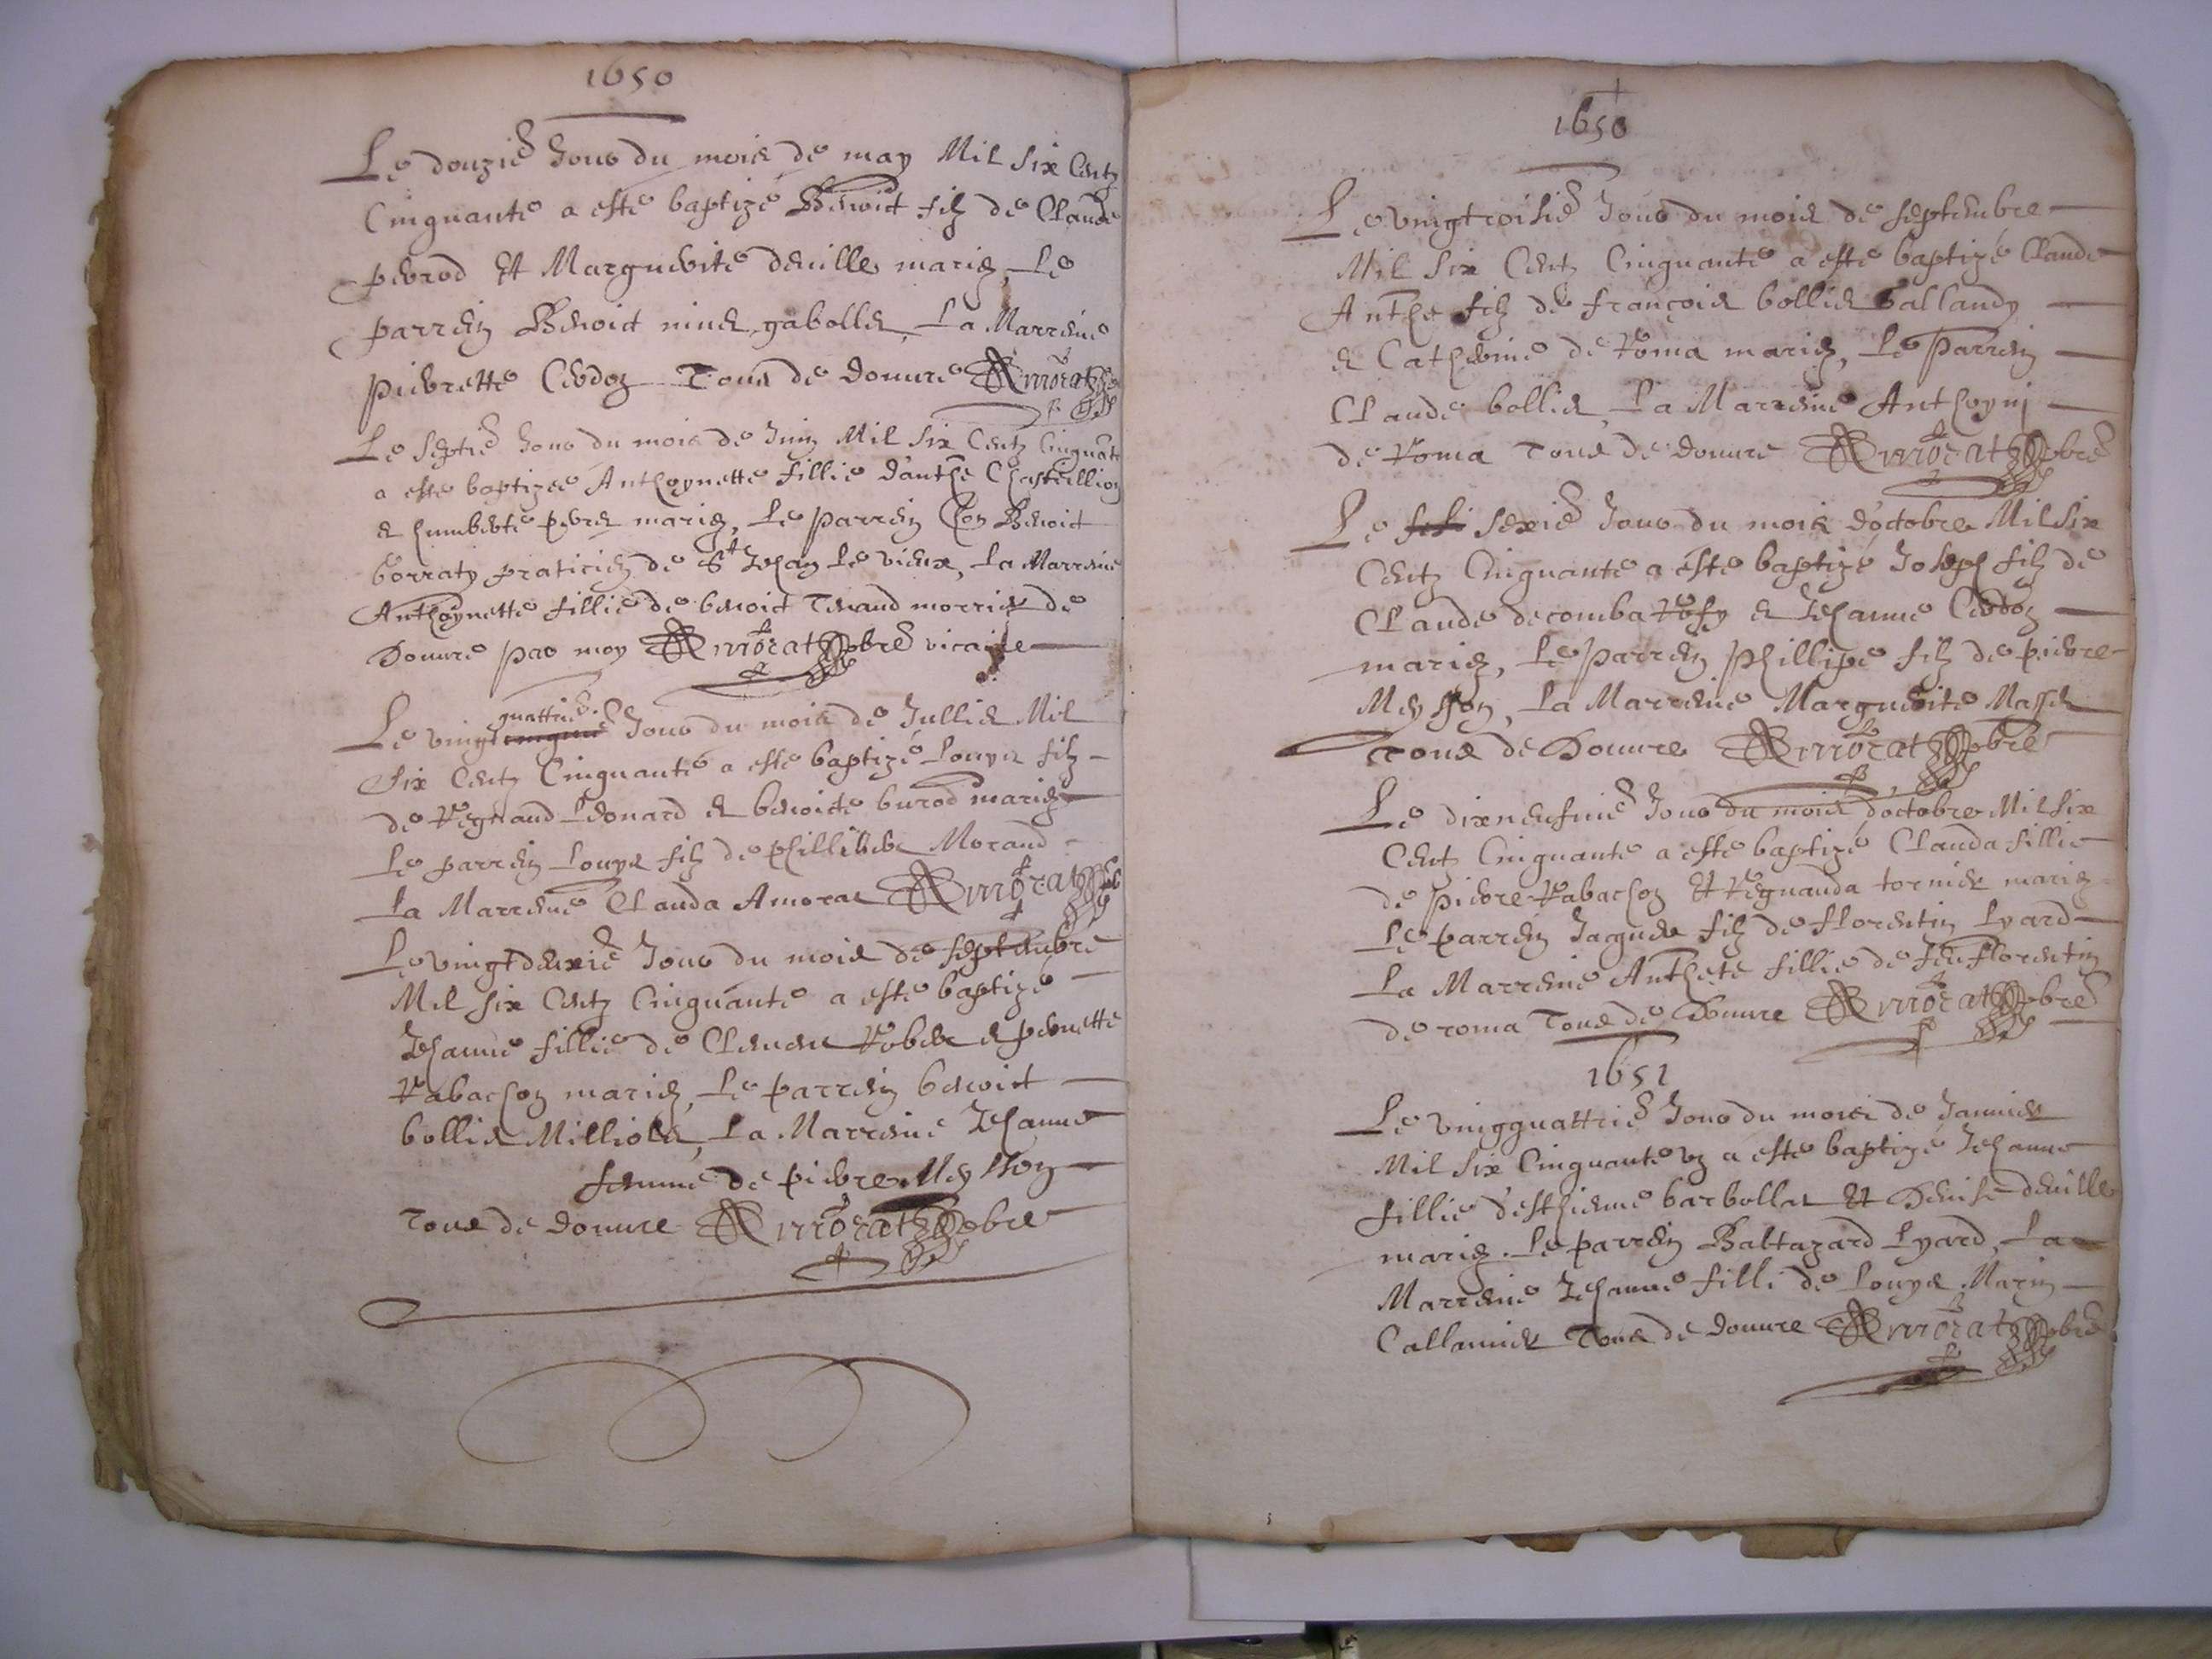 1650
Le douzie Jour du mois de may Mil six Centz
Cinquante a esté baptizé Benoict filz de Claude
perrod Et Marguerite deuille mariez, Le
parrein Benoict gabollet La Marreine
pierrette Cerdon Tous de douure AMorat
Le septie Jour du mois de Juin Mil six Centz Cinquate
a esté baptizée Anthoynette fillie d'anthe Chastillion
et humberte mariez, Le parrein hon Benoict
borraty praticien de St Jehan Le vieux, La Marreine
Anthoynette fillie de benoict Tenand morrier de
Douure par moy AMorat pbre vicaire
Le vingt quattrie Jour du mois de Jullie Mil
six Centz Cinquante a esté baptizé Louys filz
de Regnaud Edouard et benoicte burod mariez
Le parrein Louys filz de phillibert Morand
La Marreine Clauda Amorat AMorat pbre
Le vingtdeuxie Jour du mois de septembre
Mil six Centz Cinquante a esté baptizé
Jehanne fillie de Clement Robert et pernette
Rabachon mariez, Le parrein benoict
bolliet Milliolet, La Marreine Jehanne
femme de pierre Meysson
Tous de douure AMorat pbre
1650
Le vingtroisie Jour du mois de septembre
Mil six Centz Cinquante a esté baptizé Claude
Anthe filz de françois bolliet ballandy
et Catherine de Roma mariez, Le parrein
Claude bolliet, La Marreine Anthoyni
de Roma Tous de douure AMorat pbre
Le sexie Jour du mois d'octobre Mil six
Centz Cinquante a esté baptizé Joseph filz de
Claude decomba Rosy et Jehanne Cerdon
mariez, Le parrein phillipe filz de pierre
Meysson, La Marreine Marguerite Masset
Tous de Douure AMorat pbre
Le dixneufuie Jour du mois d'octobre Mil six
Centz Cinquante a esté baptizé Clauda fillie
de pierre Rabachon Et Regnauda tornier mariez
Le parrein Jaques filz de florentin Lyard
La Marreine Anthete fillie de feu florentin
de roma Tous de Douure AMorat pbre
1651
Le vingquattrie Jour du mois de Januier
Mil six Cinquante vn a esté baptizé Jehanne
fillie d'esthienne barbollat Et Denise deuille
mariez. Le parrein Baltazard Lyard, La
Marreine Jehanne filli de Louys Marin
Callamier Tous de douure AMorat pbre